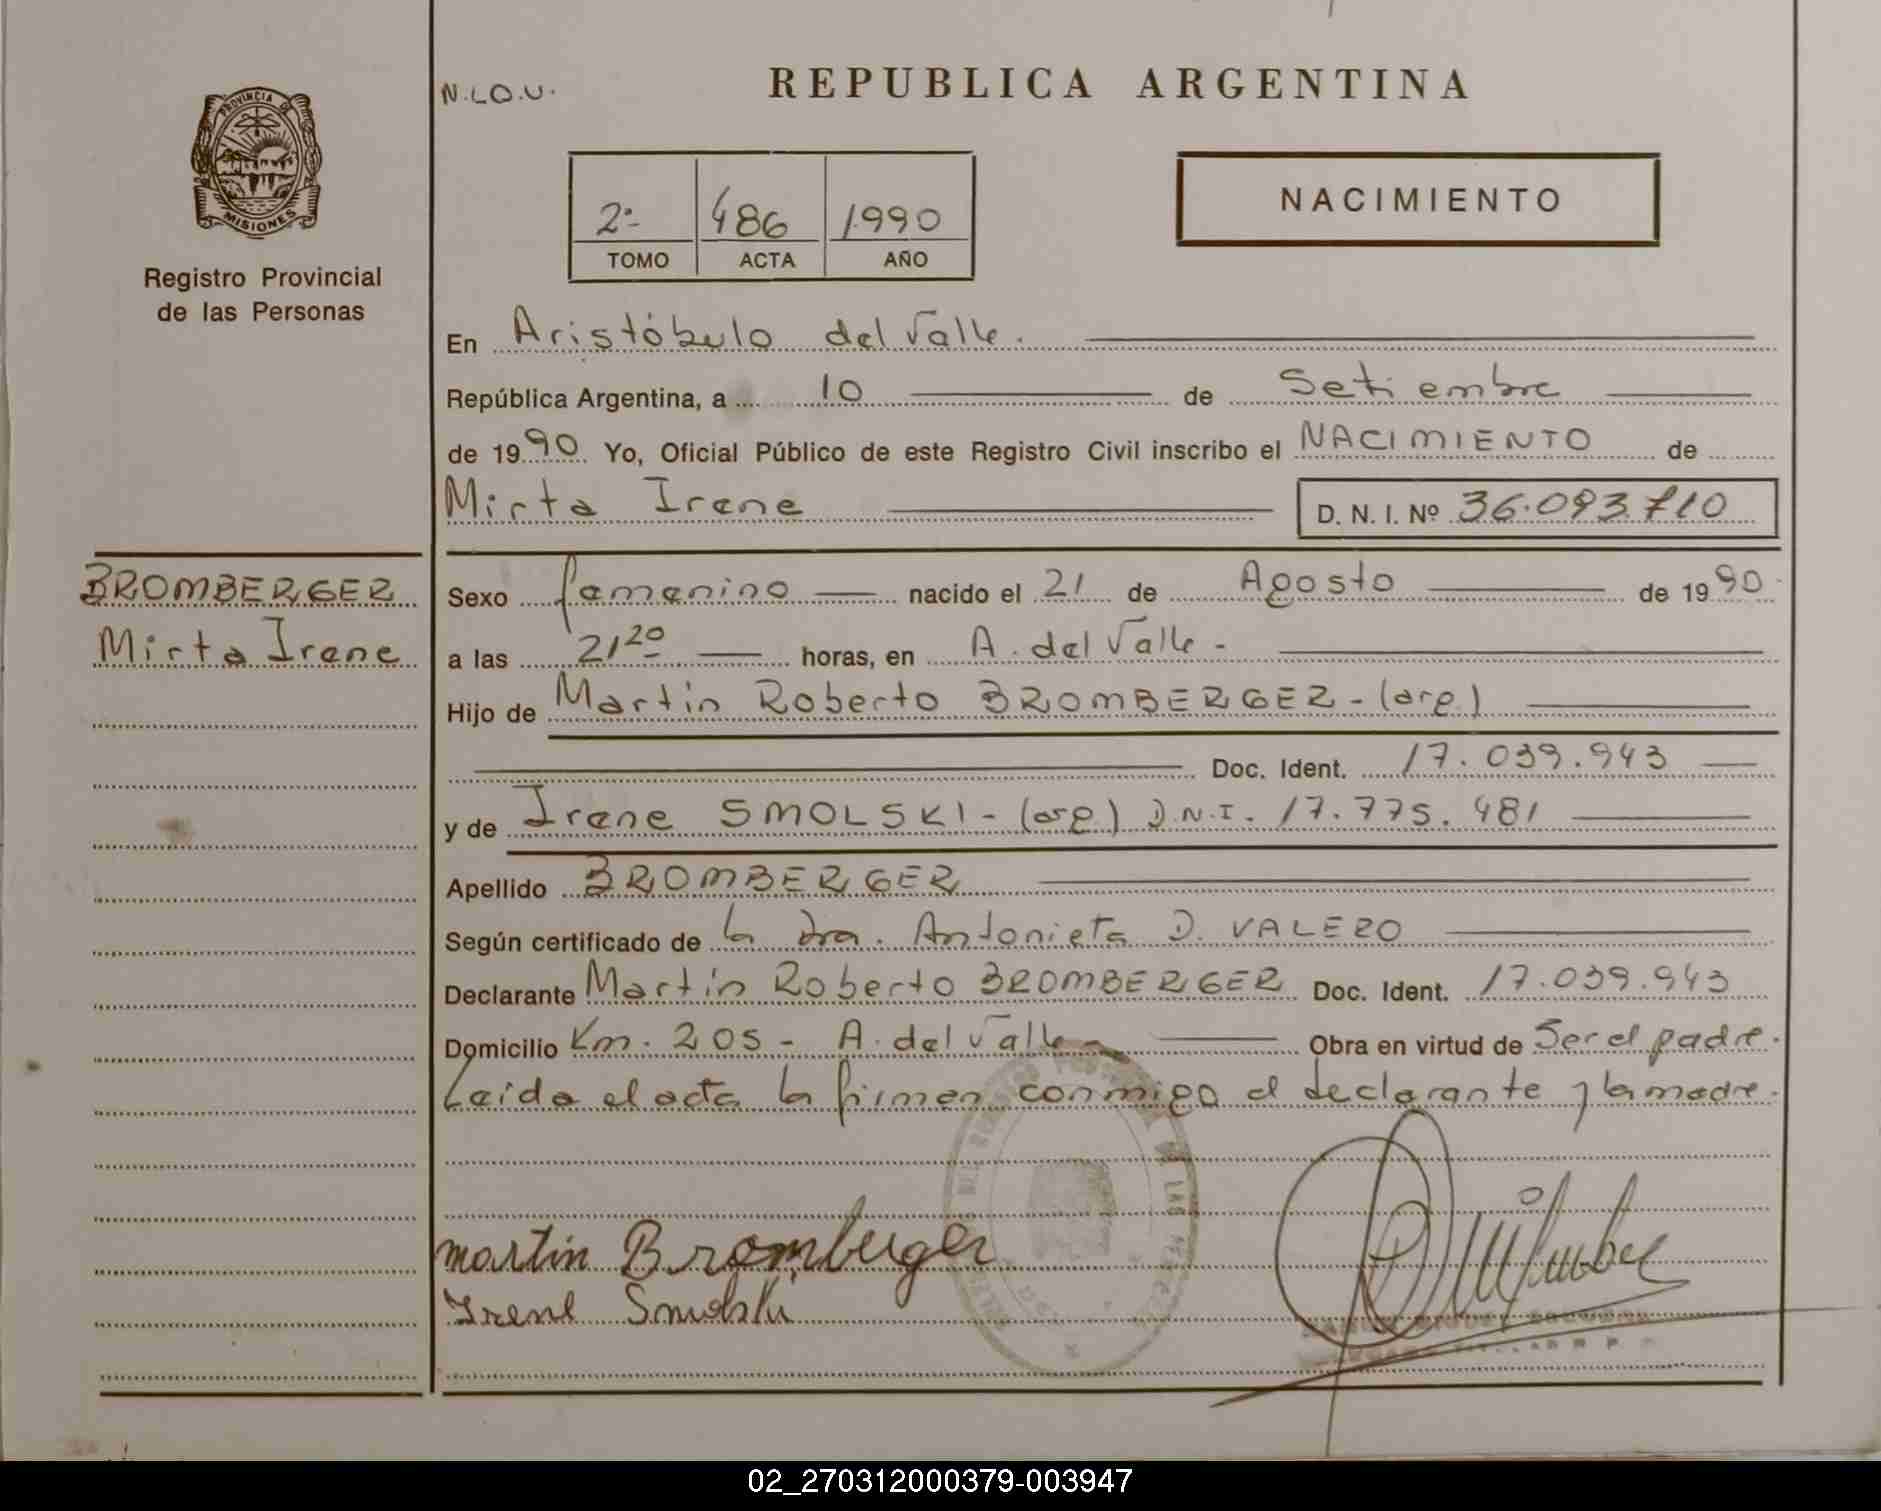 N.LO.U.
REPUBLICA ARGENTINA
PROVINCIA DE
MISIONES
Registro Provincial
de las Personas
2º 486 1990
TOMO ACTA AÑO
NACIMIENTO
En Aristóbulo del Valle.
República Argentina, a 10 de Setiembre
de 1990 Yo, Oficial Público de este Registro Civil inscribo el NACIMIENTO de
Mirta Irene D. N. I. Nº 36.093.710
BROMBERGER
Mirta Irene
Sexo femenino nacido el 21 de Agosto de 1990
a las 21 20 horas, en A. del Valle -
Hijo de Martín Roberto BROMBERGER - (arg)
Doc. Ident. 17.039.943
y de Irene SMOLSKI - (arg) D.N.I. 17.775.481
Apellido BROMBERGER
Según certificado de la Dra. Antonieta D. VALERO
Declarante Martín Roberto BROMBERGER Doc. Ident. 17.039.943
Domicilio Km. 205 - A. del Valle - Obra en virtud de Ser el padre.
Leida el acta la firman conmigo el declarante y la madre.
martin Bromberger
Irene Smolski
02_270312000379-003947